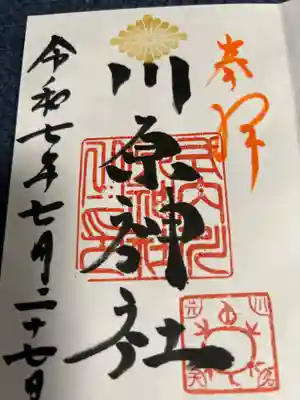 奉拝
川原神社
令和七年七月二十七日